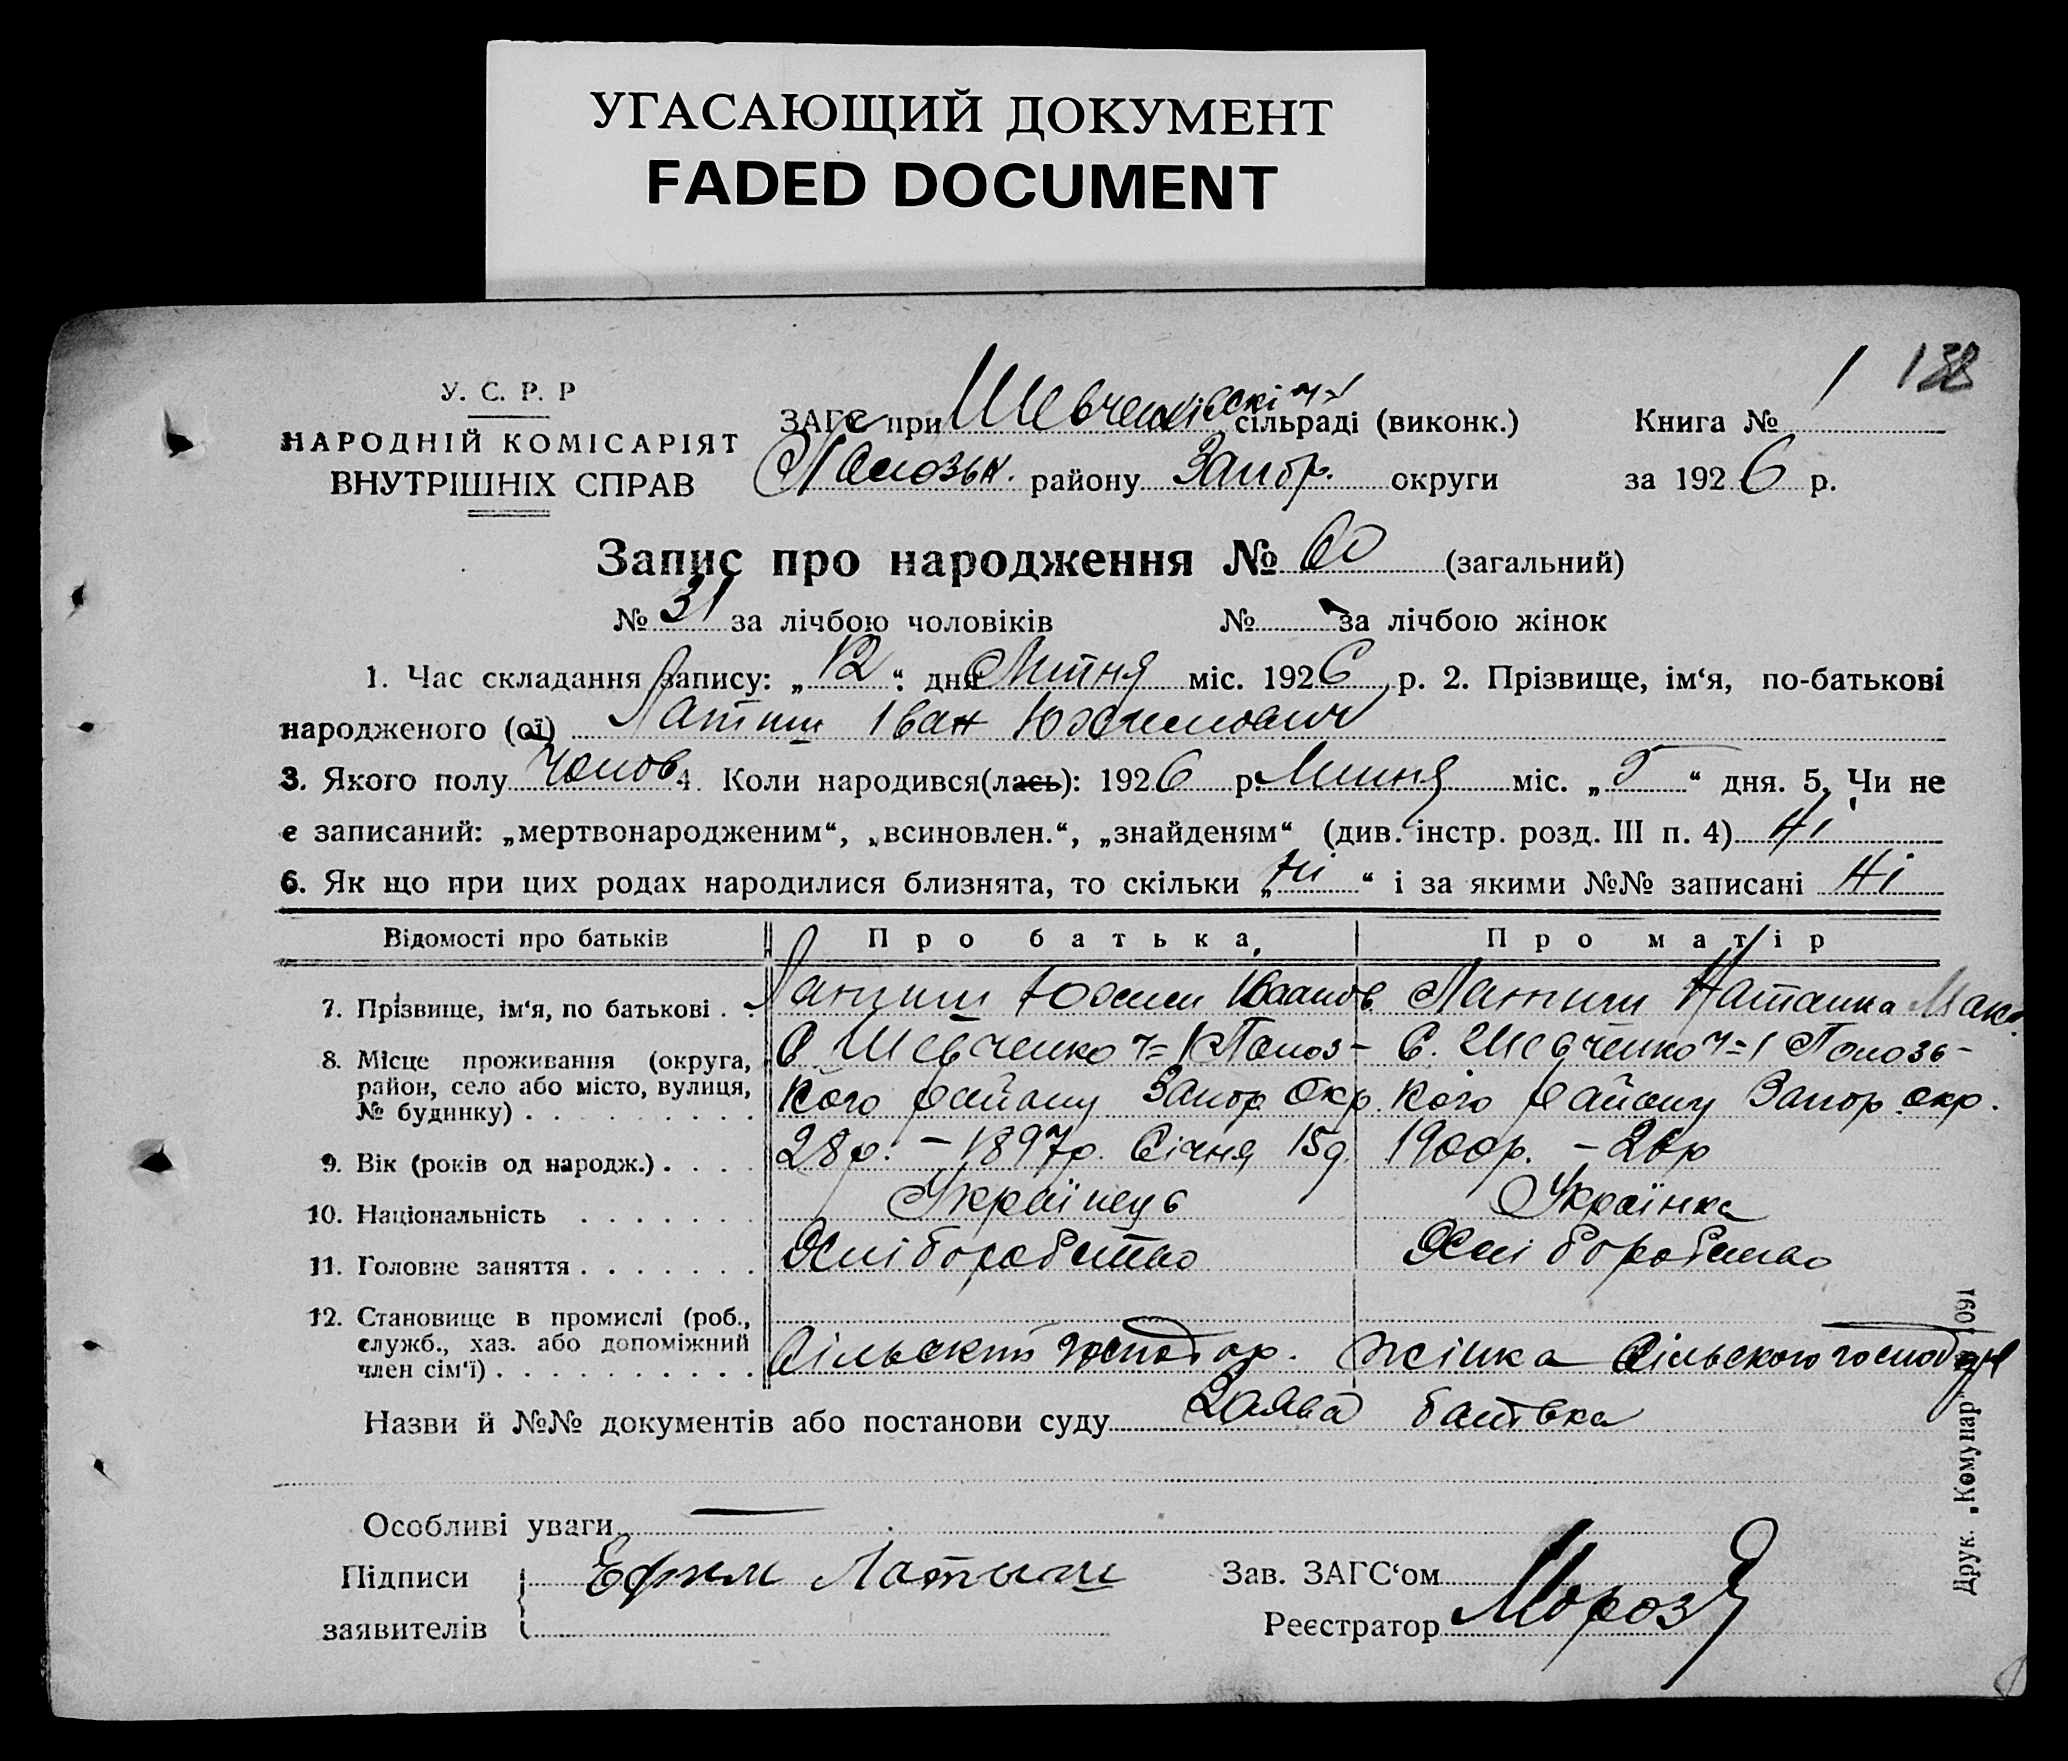 УГАСАЮЩИЙ ДОКУМЕНТ
FADED DOCUMENT
138
У. С. Р. Р
НАРОДНІЙ КОМІСАРІЯТ
ВНУТРІШНІХ СПРАВ
ЗАГС при Шевченківскі №1 сільраді (виконк.)
Книга № 1
Полозьк. району Запор. округи
за 1926 р.
Запис про народження № 60 (загальний)
№ 31 за лічбою чоловіків № за лічбою жінок
1. Час складання запису: „12“ дня Липня міс. 1926 р. 2. Прізвище, ім‘я, по-батькові
народженого (ої) Латиш Іван Юхимович
3. Якого полу Чолов 4. Коли народився(лась): 1926 р. Липня міс. „5“ дня. 5. Чи не
е записаний: „мертвонародженим“, „всиновлен.“, „знайденям“ (див. інстр. розд. III п. 4) Ні
6. Як що при цих родах народилися близнята, то скільки „Ні“ і за якими №№ записані Ні
Відомості про батьків Про батька Про матір
7. Прізвище, ім‘я, по батькові . . Латиш Юхим Іванов Латиш Наталка Мак.
8. Місце проживання (округа,
район, село або місто, вулиця,
№ будинку) . . . . . . . . .
С Шевченко №1 Полоз-
кого району Запор Окр.
С. Шевченко №1 Полозь-
кого району Запор. окр.
9. Вік (років од народж.) . . . . 28 р. – 1897р. Січня 15д 1900р. – 26р
10. Національність . . . . . . . Українець Українка
11. Головне заняття . . . . . . . Хліборобство Хліборобство
12. Становище в промислі (роб.,
служб., хаз. або допоміжний
член сім‘ї) . . . . . . . . . .
Сільский господар. жінка Сільского господаря
Назви й №№ документів або постанови суду Заява батька
Особливі уваги —
Підписи
заявителів
Ефим Латыш
Зав. ЗАГС‘ом
Реєстратор Мороз
Друк. „Комунар“ 1091